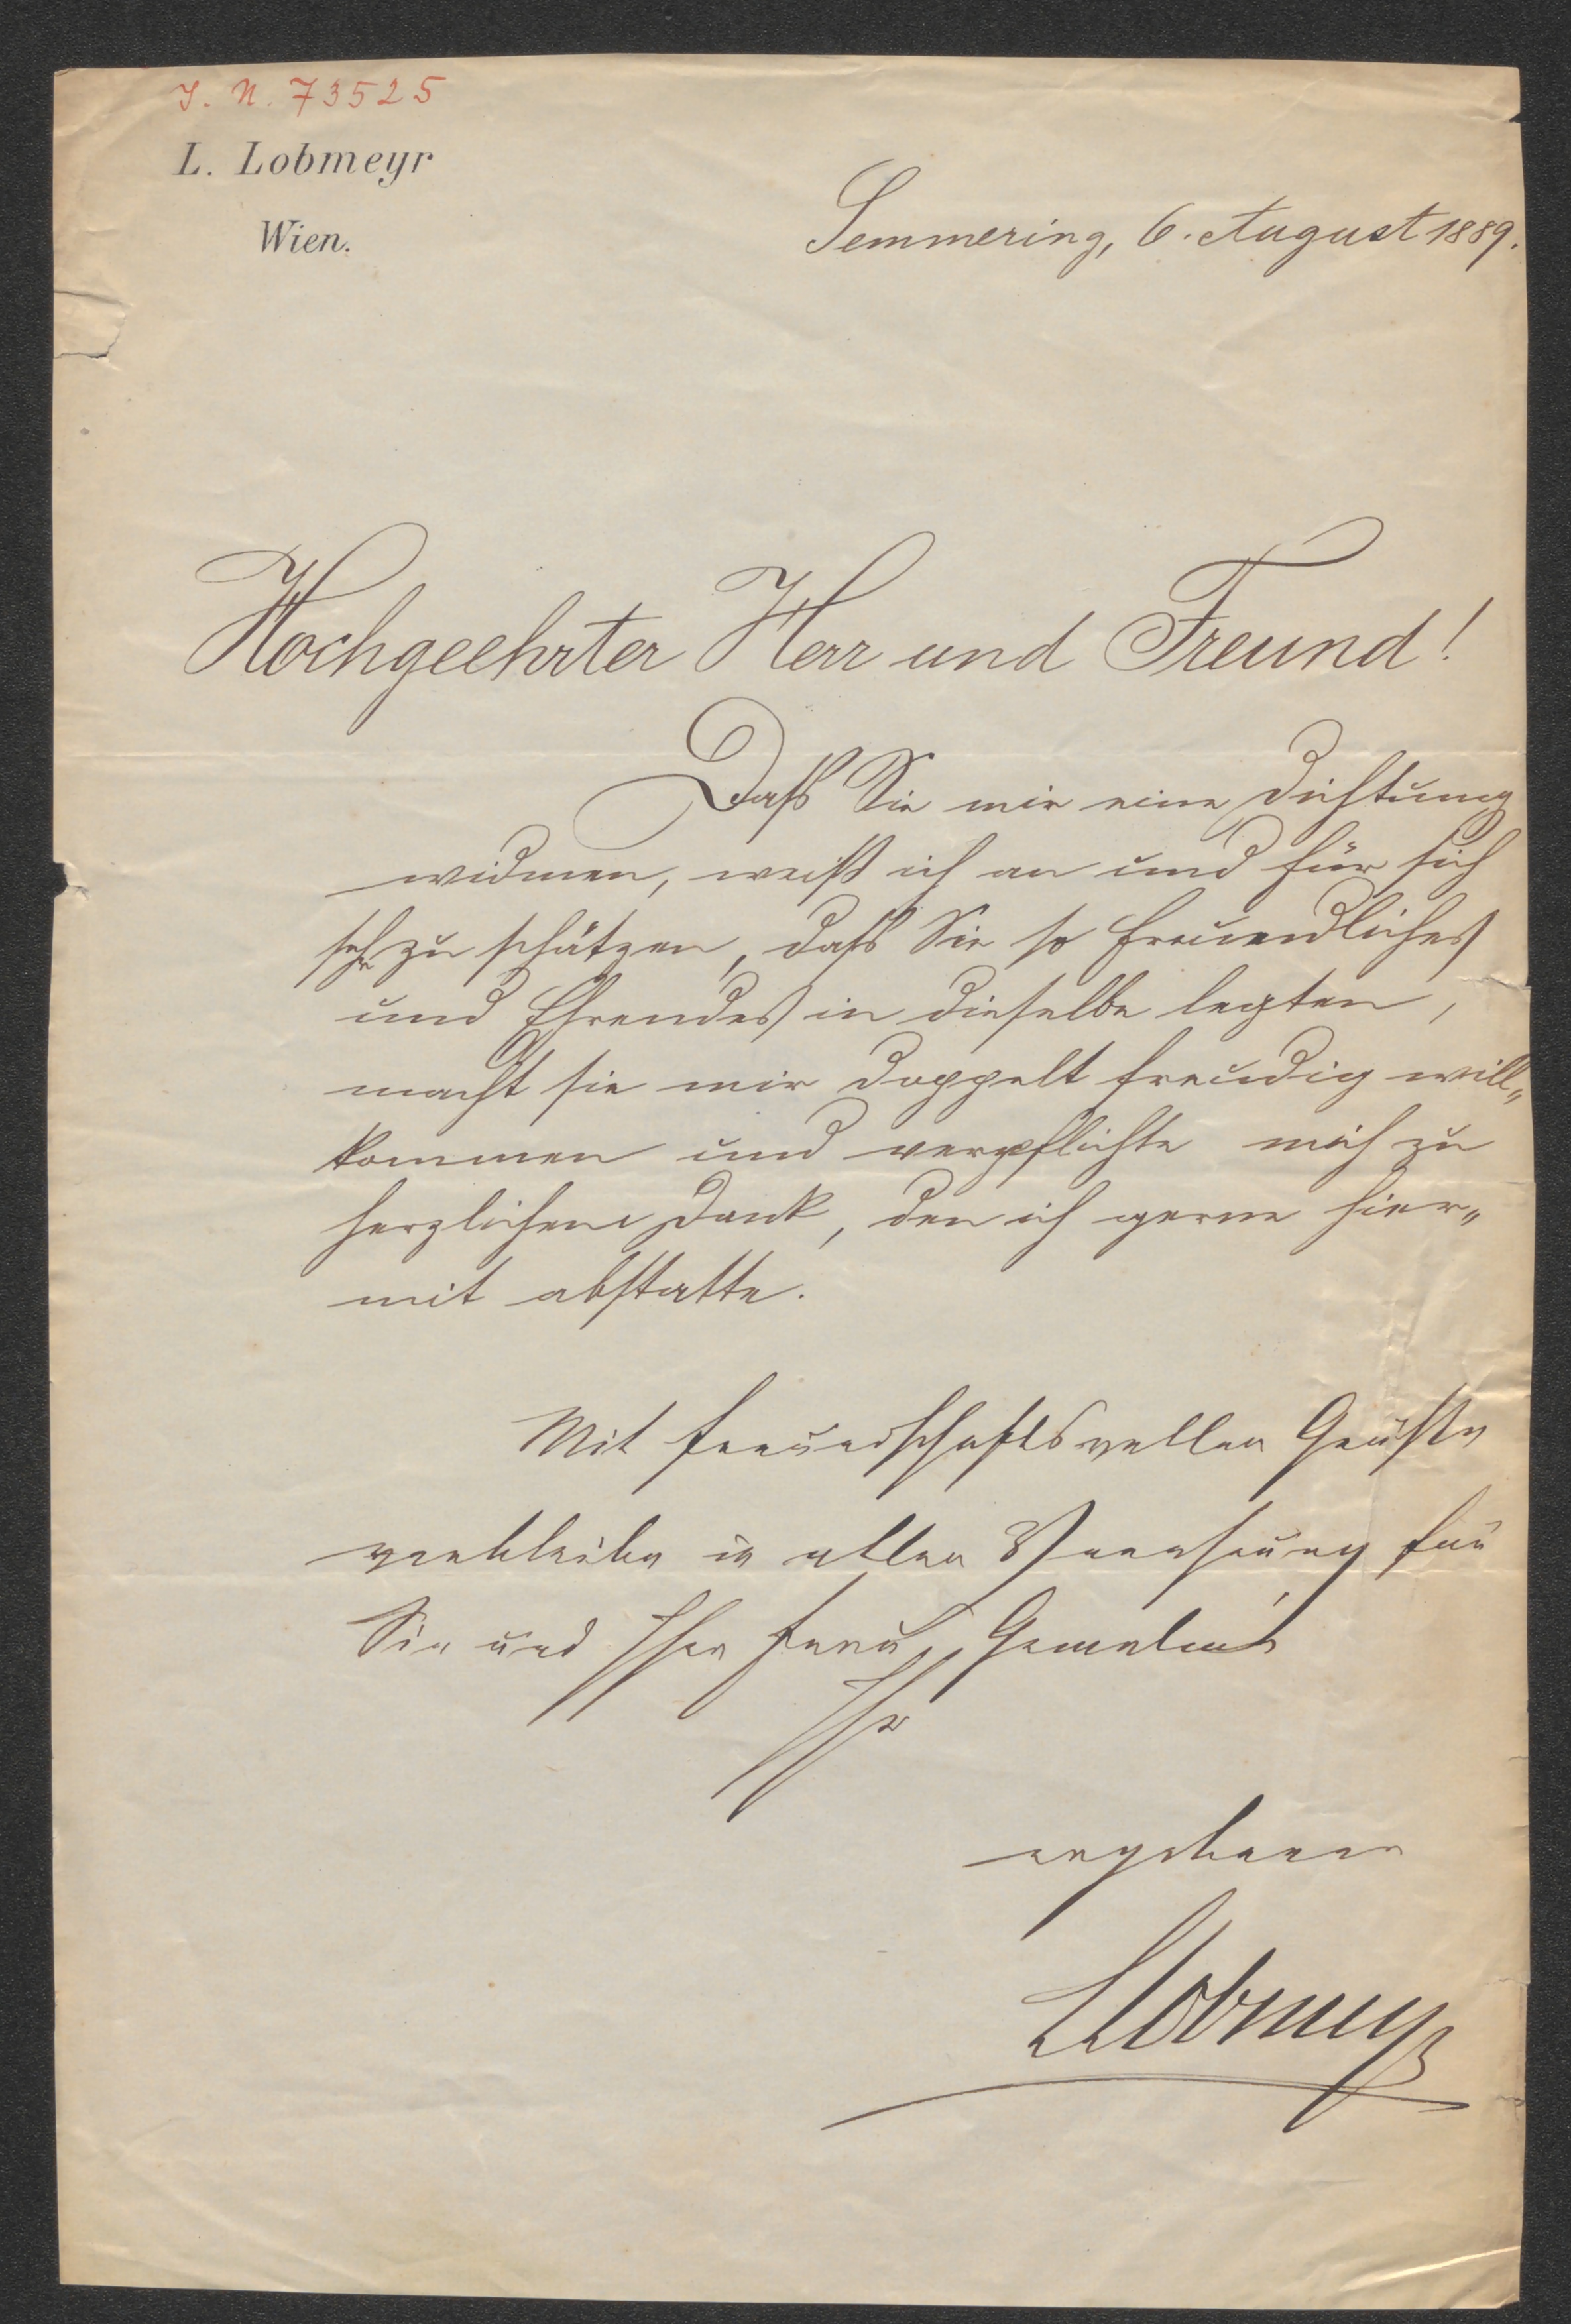 J. N. 73525
L. Lobmeyr
Wien.
Semmering, 6. August 1889.
Hochgeehrter Herr und Freund!
Daß Sie mir eine Dichtung
widmen, weiß ich an und für sich
sehr zu schätzen, daß Sie so Freundliches
und Ehrendes in dieselbe legten,
macht sie mir doppelt freudig will„
kommen und verpflichte mich zu
herzlichem Dank, den ich gerne hier„
mit abstatte.
Mit freundschaftsvollen Grüßen
verbleibe in aller Verehrung für
Sie und Ihre Frau Gemalin
Ihr
ergebener
LLobmeyr